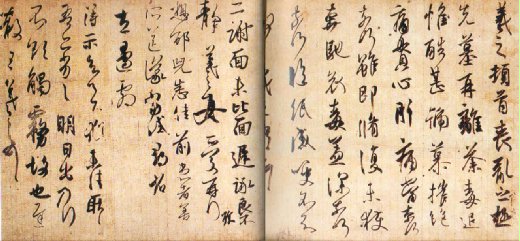 羲之頓首喪亂之極
先墓再離荼毒追
惟酷甚號慕摧絕
痛貫心肝痛當奈何
奈何雖即脩復未獲
奔馳哀毒益深奈何
奈何臨紙感哽不知
二謝面未比面遲詠良不
靜羲之女愛再拜
想邵兒悉佳前患者善
所送議當試尋省
左邊劇
得示知足下猶未佳耿耿
吾亦劣劣明日出乃行
不欲觸霧故也遲
散王羲之頓首